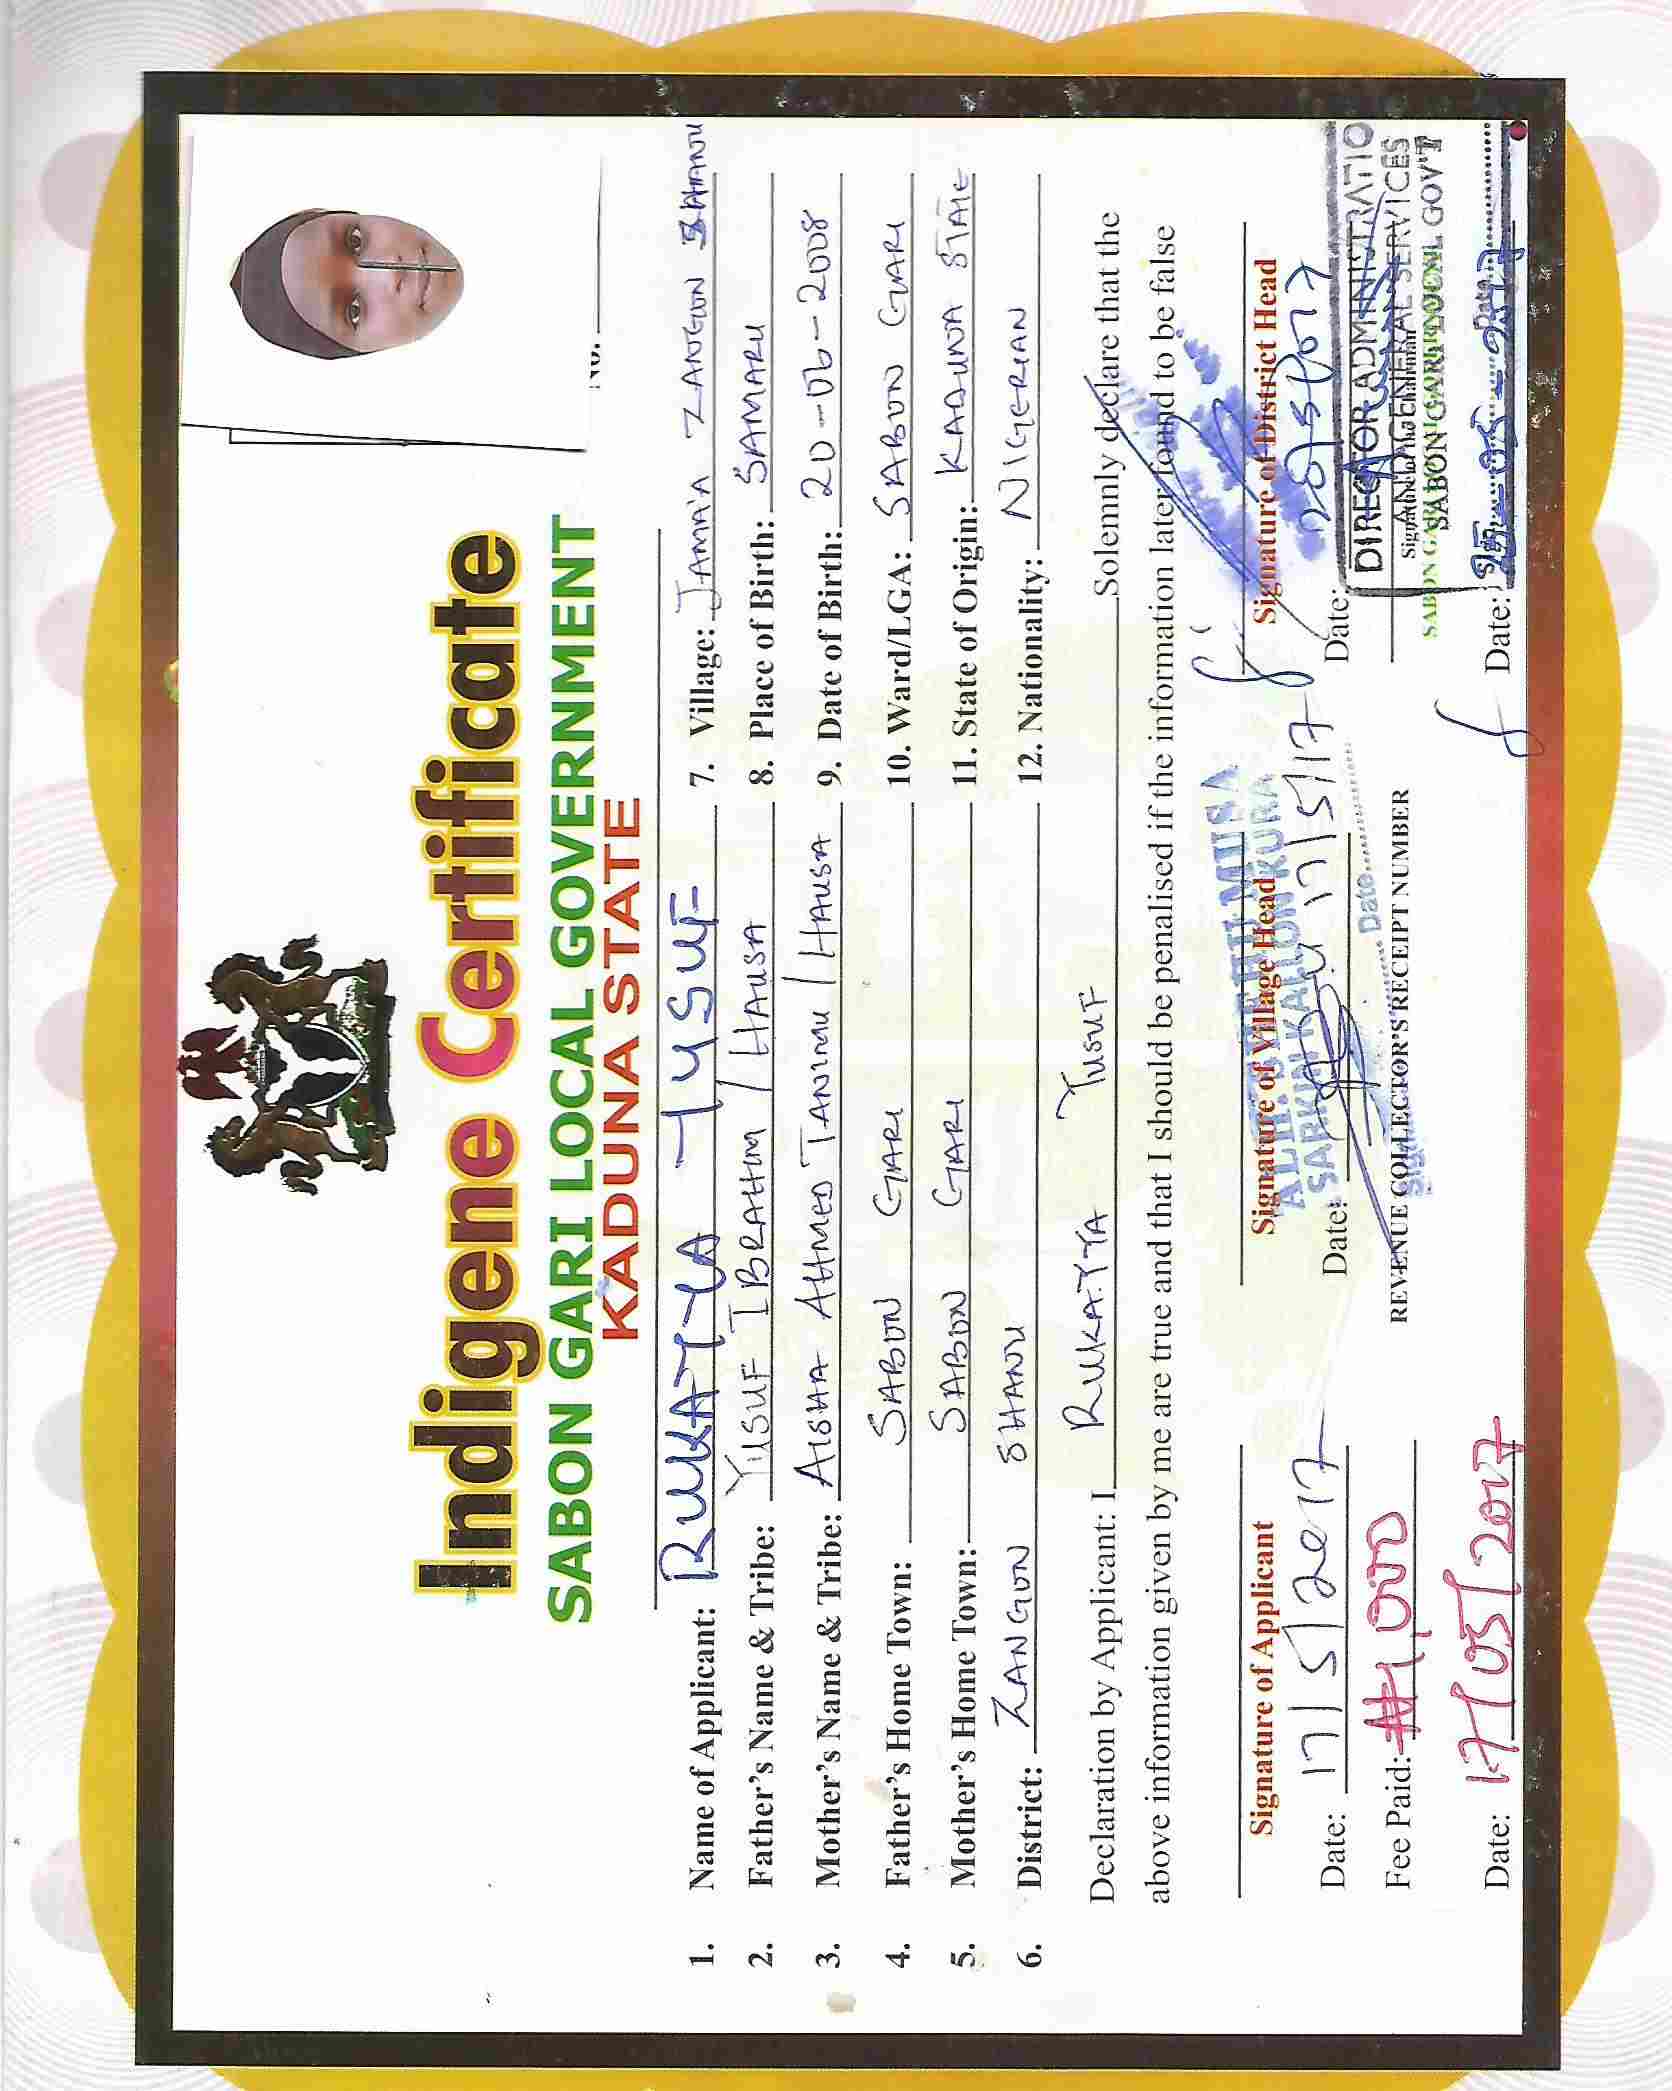 No.
Indigene Certificate
SABON GARI LOCAL GOVERNMENT
KADUNA STATE
1. Name of Applicant: RUKAYYA YUSUF
2. Father's Name & Tribe: YUSUF IBRAHIM / HAUSA
3. Mother's Name & Tribe: AISHA AHMED TANIMU / HAUSA
4. Father's Home Town: SABON GARI
5. Mother's Home Town: SABON GARI
6. District: ZANGON SHANU
7. Village: JAMA'A ZANGON SHANU
8. Place of Birth: SAMARU
9. Date of Birth: 20-06-2008
10. Ward/LGA: SABON GARI
11. State of Origin: KADUNA STATE
12. Nationality: NIGERIAN
Declaration by Applicant: I RUKAYYA YUSUF Solemnly declare that the
above information given by me are true and that I should be penalised if the information later found to be false
Signature of Applicant
Date: 17/5/2017
Fee Paid: ₦1,000
Date: 17/05/2017
Signature of Village Head
ALH. SANI MUSA
SARKIN KARFUNKURA
Date: 17/5/17
Date
REVENUE COLLECTOR'S RECEIPT NUMBER
Signature of District Head
Date:
DIRECTOR ADMINISTRATIO
AND GENERAL SERVICES
SABON GARI LOCAL GOV'T
Date: